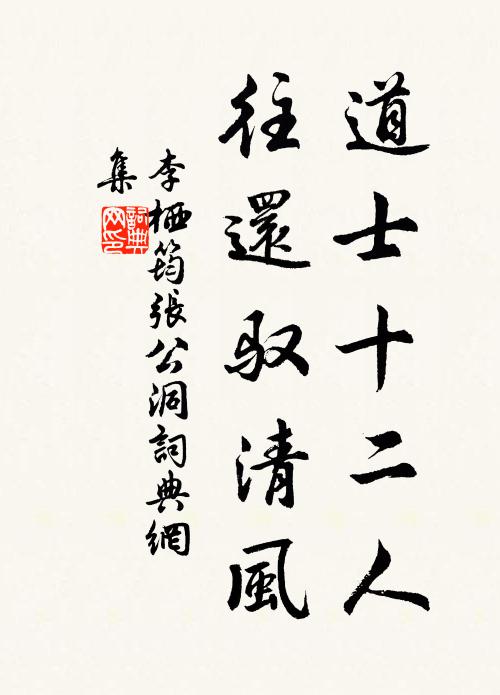 道士十二人
往還馭清風
李栖筠張公洞詞典網
集
詞典
网印